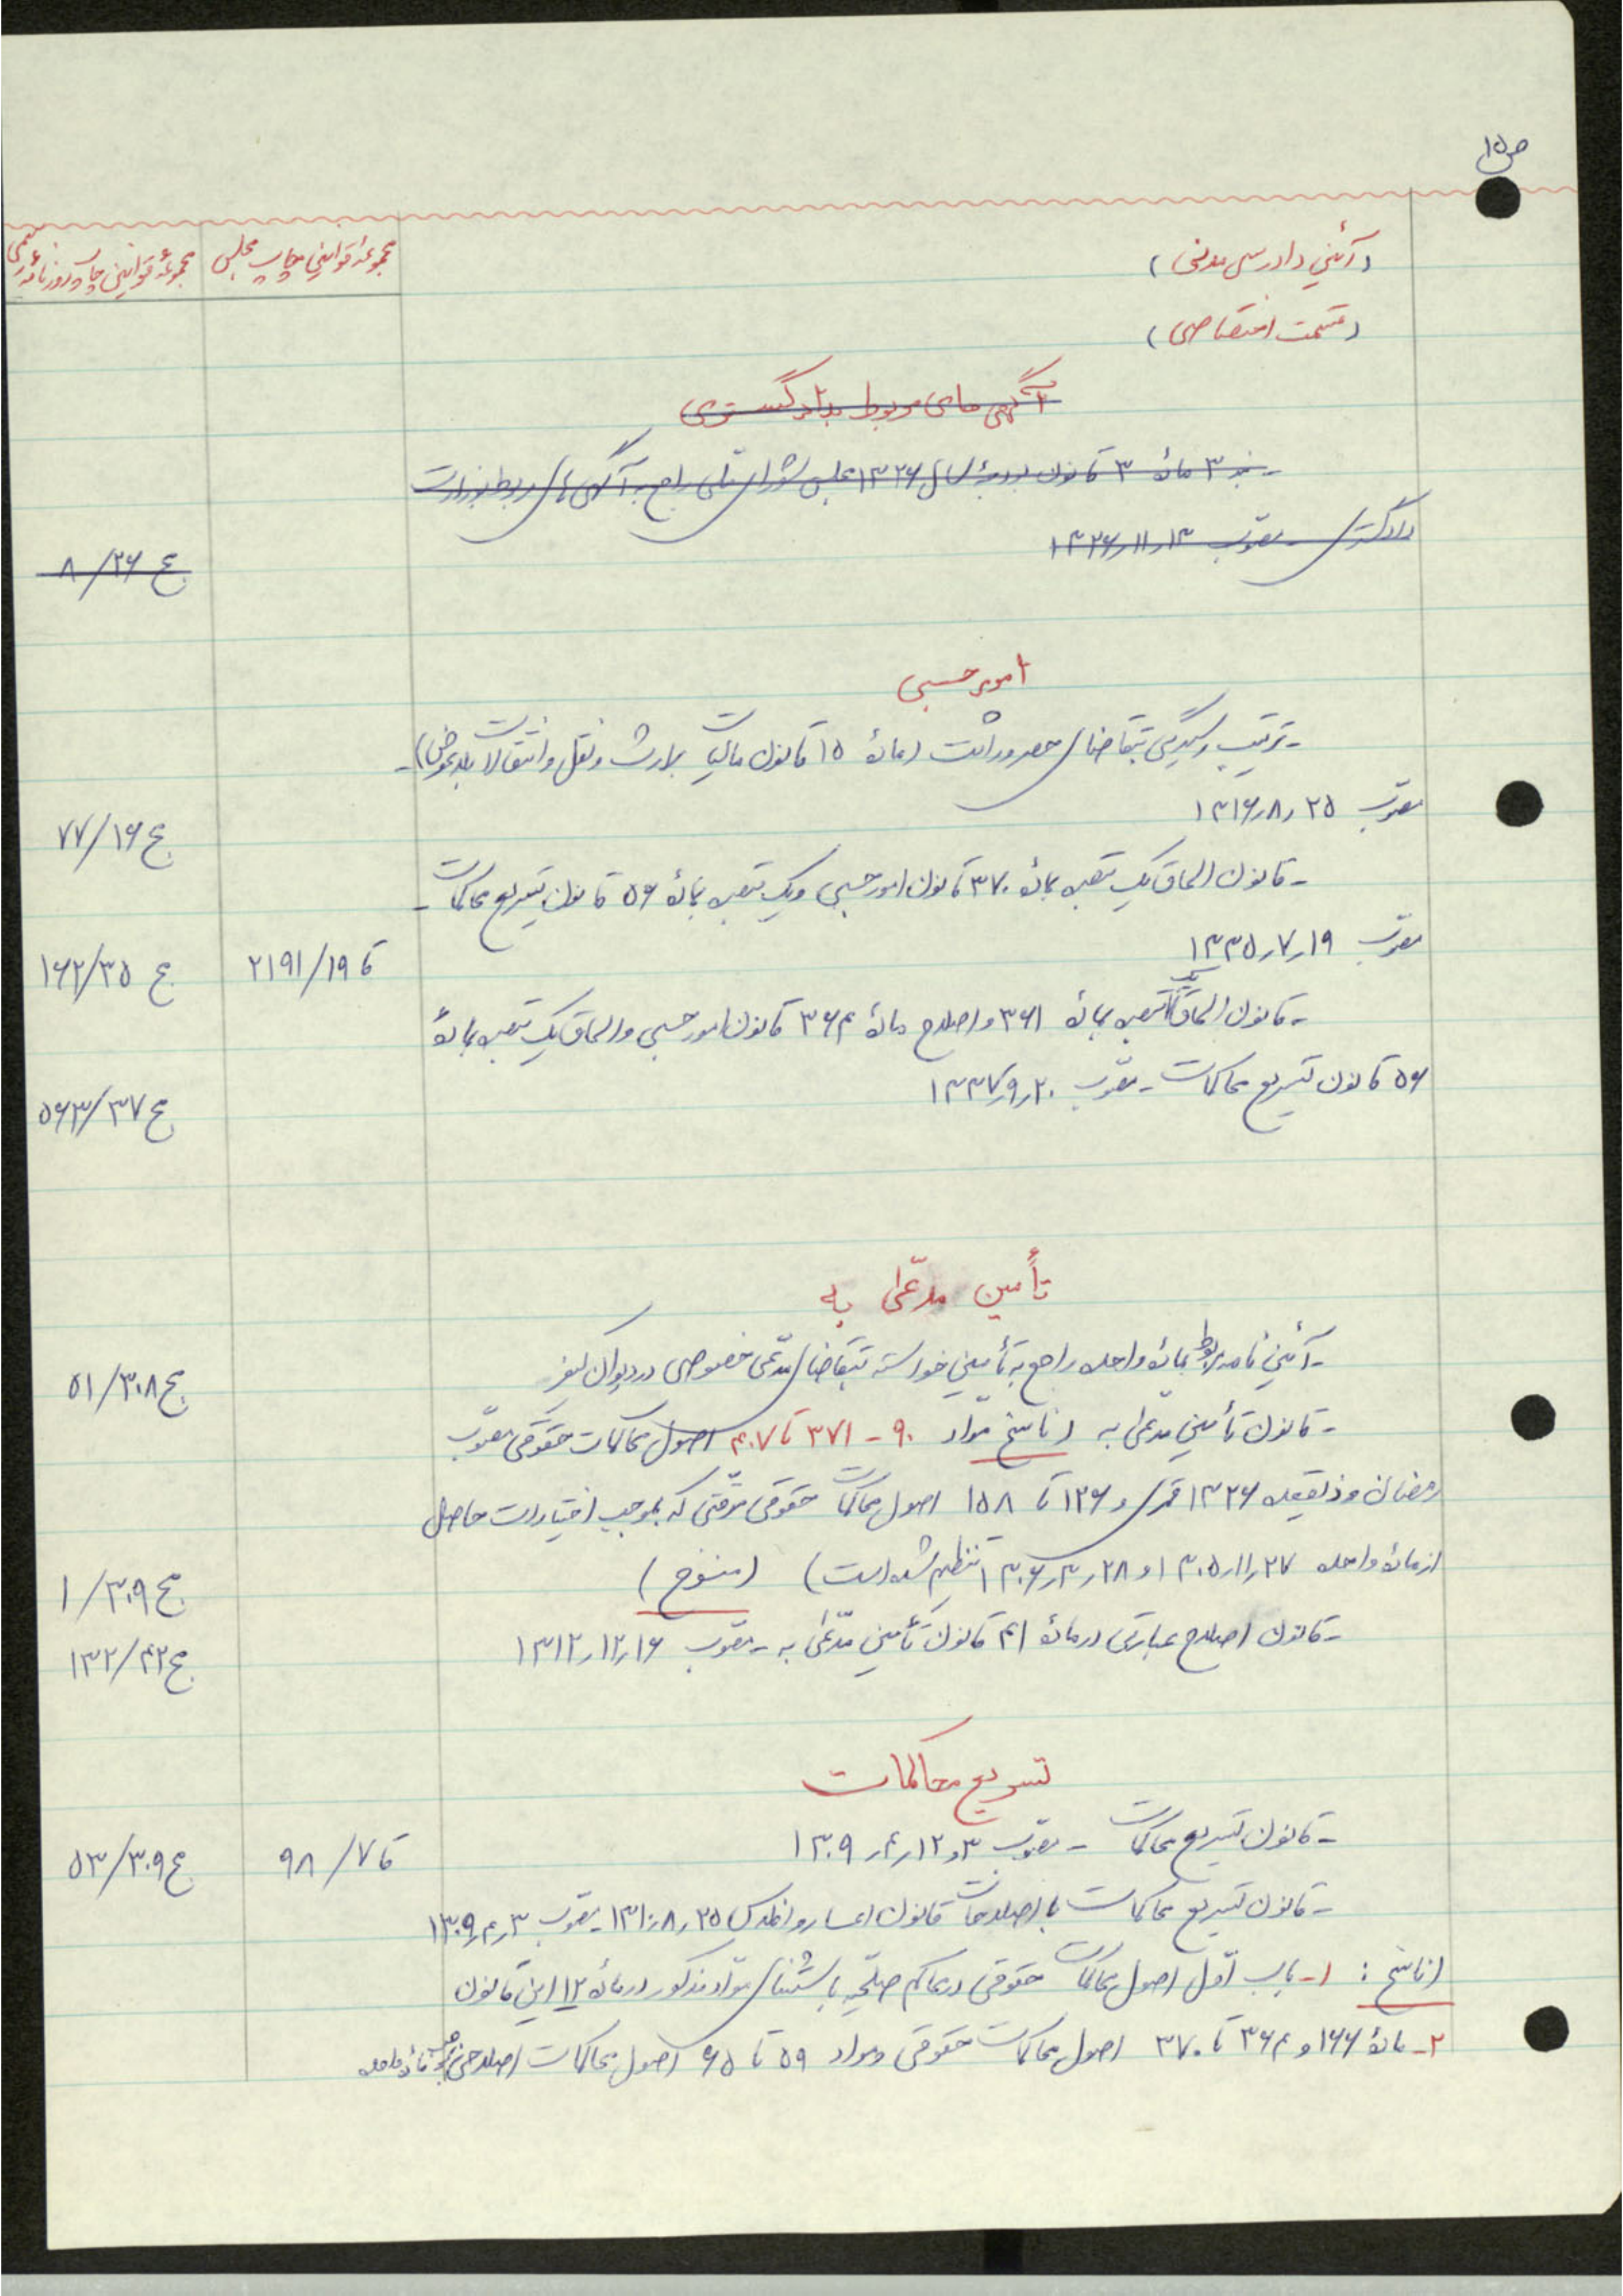 ص ۱۵
(آئین دادرسی مدنی)
مجموعهٔ قوانین چاپ مجلس
مجموعهٔ قوانین چاپ روزنامهٔ رسمی
(قسمت اختصاصی)
آگهی های مربوط بدادگستری
- بند ۳ مادهٔ ۳ قانون بودجهٔ سال ۱۳۲۶ مجلس شورای ملی راجع به آگهی های مربوط بوزارت
دادگستری - مصوب ۱۳ر۱۱ر۱۳۲۶
ج ۲۶/۸
امور حسبی
- ترتیب رسیدگی بتقاضای حصر وراثت (مادهٔ ۱۵ قانون مالیات بر ارث و نقل و انتقالات بلاعوض) -
مصوب ۲۵ر۸ر۱۳۱۶
ج ۱۶/۷۷
- قانون الحاق یک تبصره بمادهٔ ۳۷۰ قانون امور حسبی و یک تبصره بمادهٔ ۵۶ قانون تسریع محاکمات -
مصوب ۱۹ر۷ر۱۳۳۵
قا ۱۹/۲۱۹۱
ج ۳۵/۱۶۲
- قانون الحاق یک تبصره بمادهٔ ۳۶۱ و اصلاح مادهٔ ۳۶۴ قانون امور حسبی و الحاق یک تبصره بمادهٔ
۵۶ قانون تسریع محاکمات - مصوب ۲۰ر۹ر۱۳۳۷
ج ۳۷/۵۶۳
تأمین مدّعی به
- آئین نامه مربوط بمادهٔ واحده راجع به تأمین خواسته بتقاضای مدّعی خصوصی در دیوان کیفر
ج ۳۰۸/۵۱
- قانون تأمین مدّعی به (ناسخ مواد ۹۰ - ۳۷۱ تا ۴۰۷ اصول محاکمات حقوقی مصوّب
رمضان و ذیقعده ۱۳۲۶ قمری و ۱۲۶ تا ۱۵۸ اصول محاکمات حقوقی موقتی که بموجب اختیارات حاصل
از مادهٔ واحده ۲۷ر۱۱ر۱۳۰۵ و ۲۸ر۳ر۱۳۰۶ تنظیم شده است) (منسوخ)
ج ۳۰۹/۱
- قانون اصلاح عبارتی در مادهٔ ۴۱ قانون تأمین مدّعی به - مصوب ۱۶ر۱۲ر۱۳۱۲
ج ۴۲/۱۳۲
تسریع محاکمات
- قانون تسریع محاکمات - مصوب ۳ و ۱۲ر۴ر۱۳۰۹
قا ۷/۹۸
ج ۳۰۹/۵۳
- قانون تسریع محاکمات با اصلاحات قانون اعسار و افلاس ۲۵ر۸ر۱۳۱۰ - مصوب ۳ر۴ر۱۳۰۹
(ناسخ: ۱- باب اوّل اصول محاکمات حقوقی در محاکم صلحیّه باستثنای موّاد مذکور در مادهٔ ۱۲ این قانون
۲- مادهٔ ۱۶۶ و ۳۶۴ تا ۳۷۰ اصول محاکمات حقوقی و مواد ۵۹ تا ۶۵ اصول محاکمات اصلاحی بموجب مادهٔ واحده